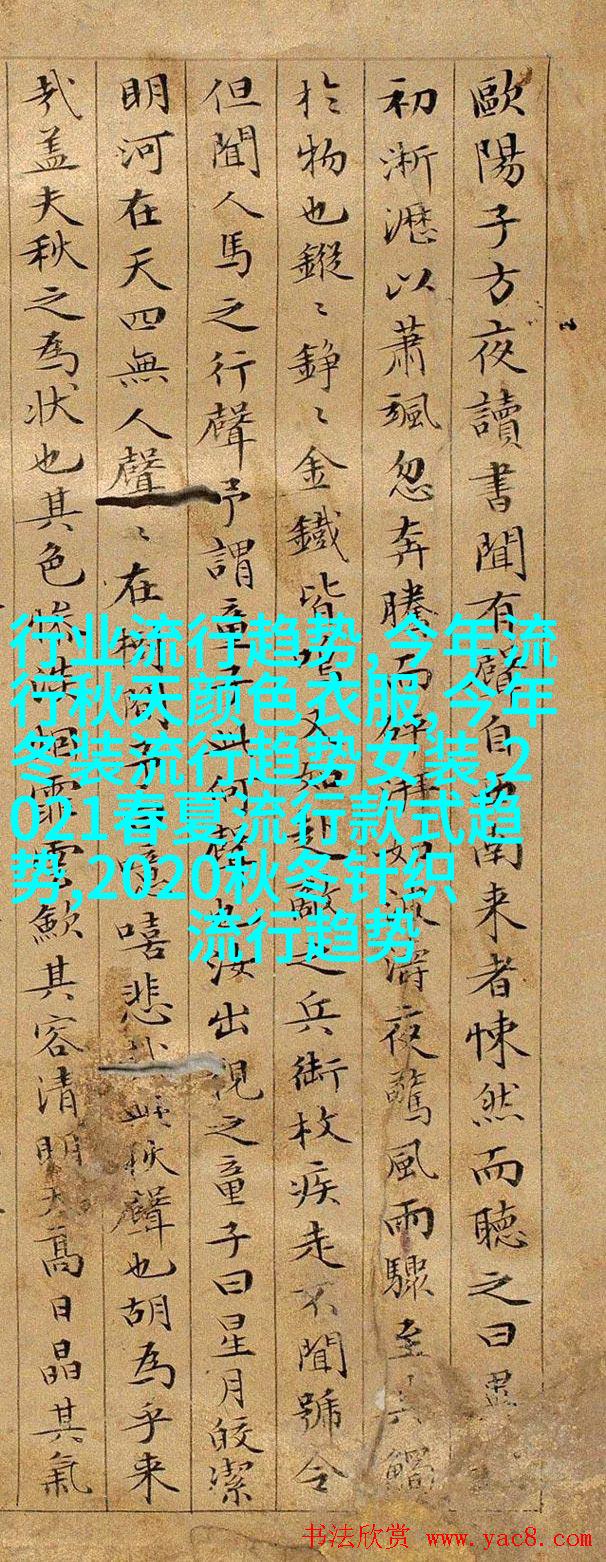 歐陽子方夜讀書聞有聲自西南來者悚然而聽之曰異
初淅瀝以蕭颯忽奔騰而砰湃如波濤夜驚風雨驟至其觸
於物也鏦〻錚〻金鐵皆鳴又如赴敵之兵銜枚疾走不聞號令
但聞人馬之行聲予謂童子此何聲也汝出視之童子曰星月皎潔
明河在天四無人聲〻在樹間予噫嘻悲此秋聲也胡為乎來
哉盖夫秋之為状也其色慘淡烟霏雲歛其容清明天高日晶其氣
行业流行趋势,今年流
行秋天颜色衣服,今年
冬装流行趋势女装,2
021春夏流行款式趋
势,2020秋冬针织
流行趋势
书法欣赏 www.yac8.com